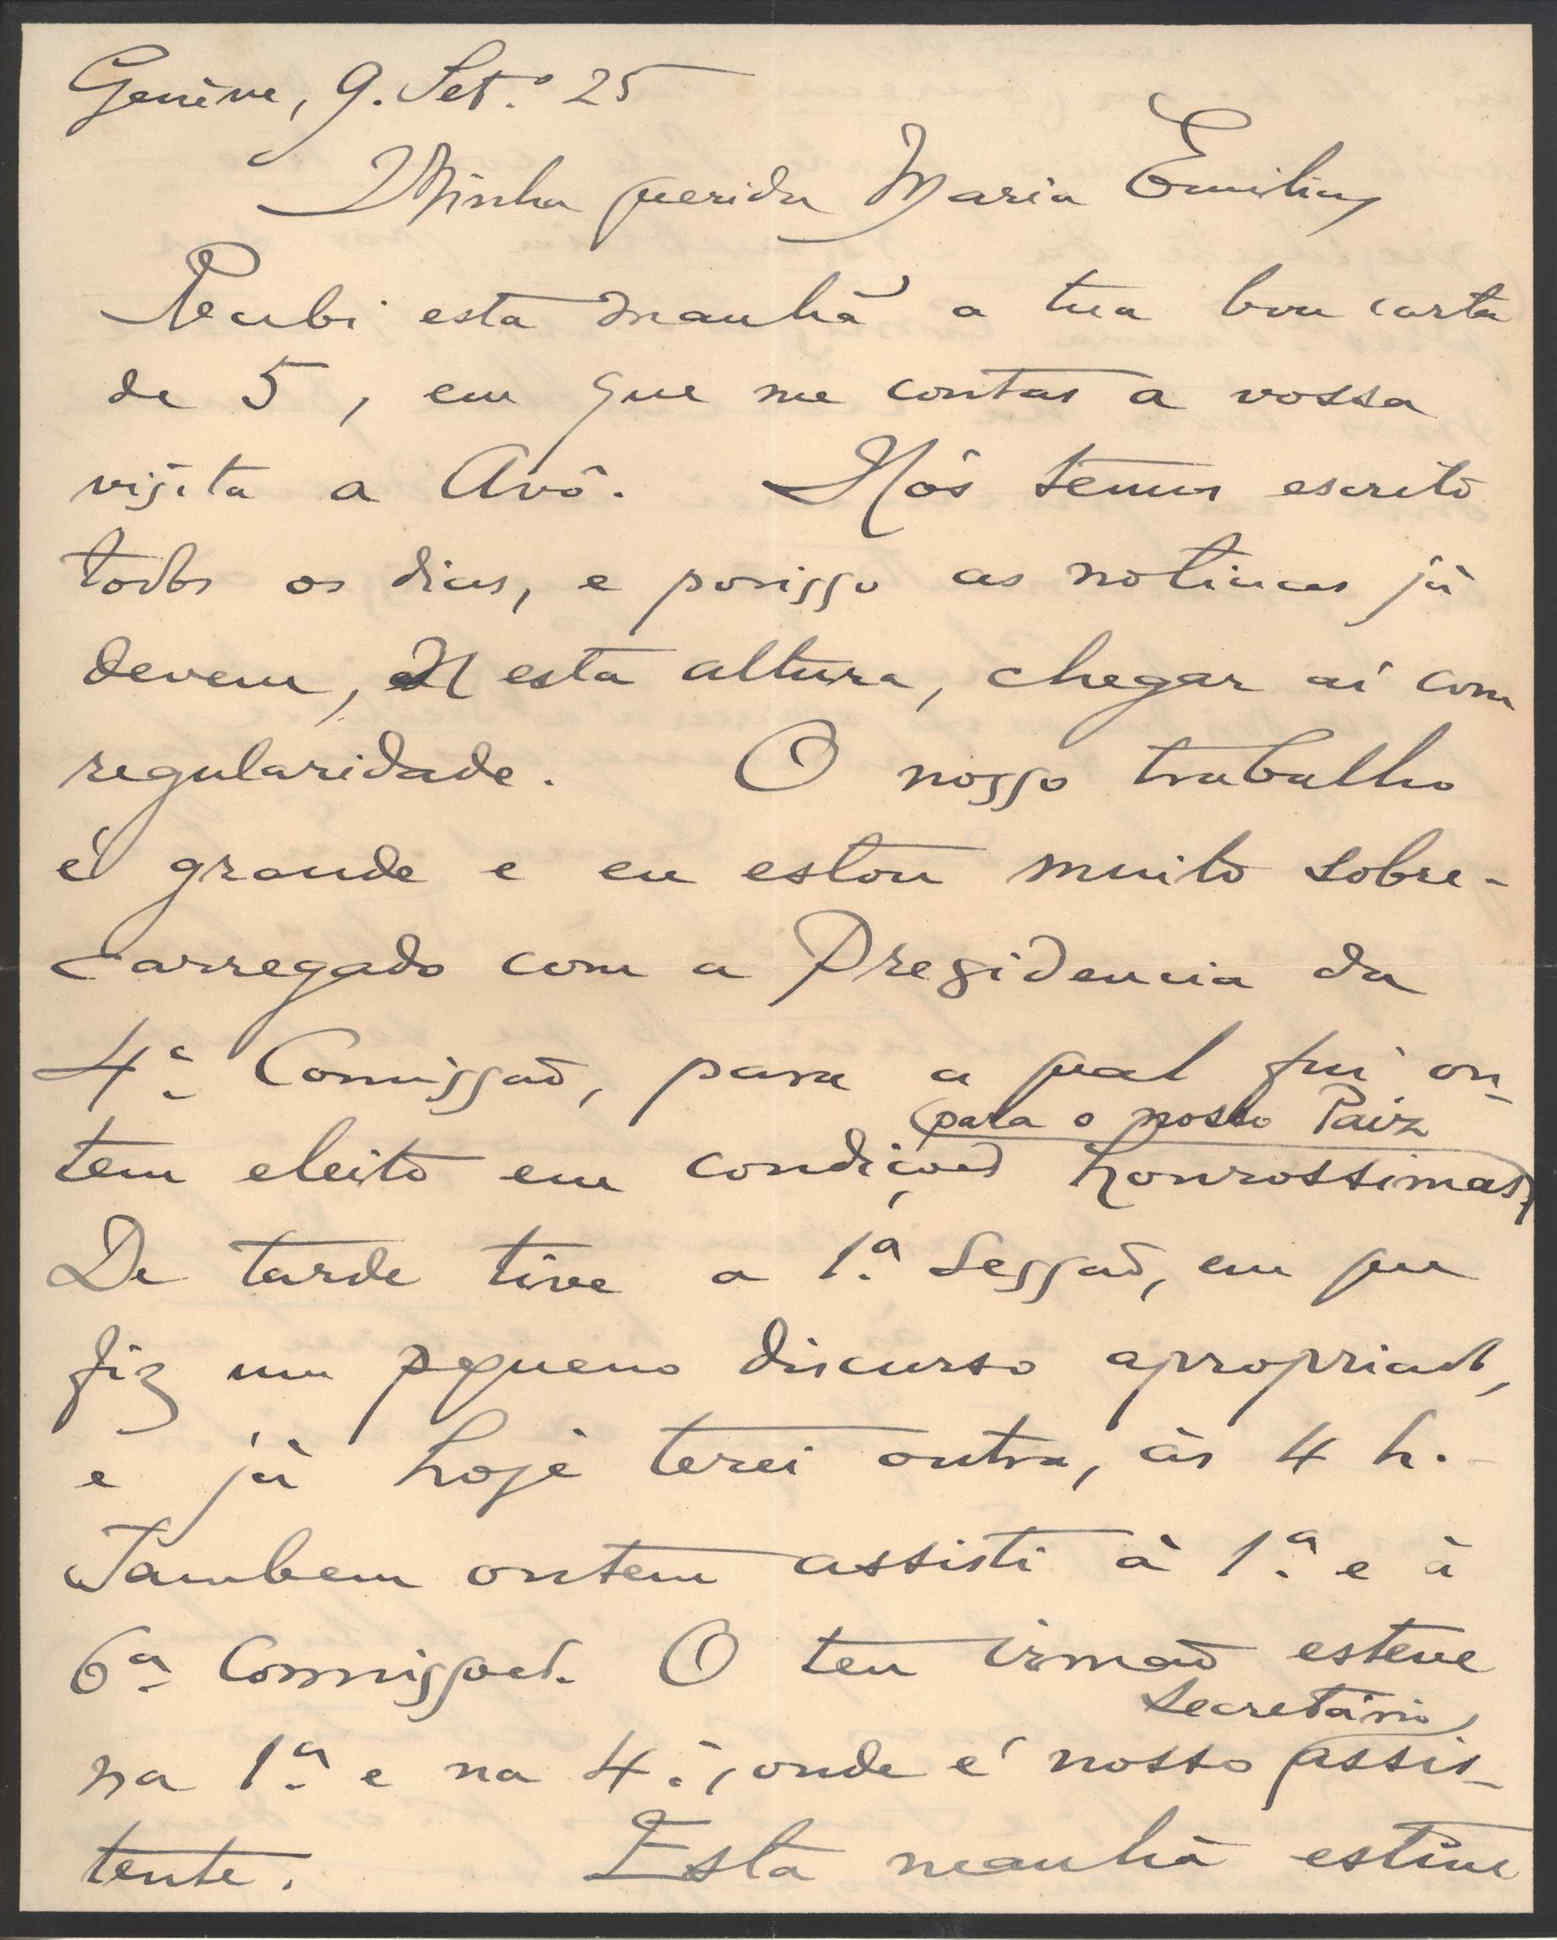 Genève, 9. Set.º 25
Minha querida Maria Emilia,
Recebi esta manhã a tua boa carta
de 5, em que me contas a vossa
visita a Avô. Nós temos escrito
todos os dias, e porisso as noticias já
devem, nesta altura, chegar aí com
regularidade. O nosso trabalho
é grande e eu estou muito sobre-
carregado com a Presidencia da
4ª Comissão, para a qual fui on-
para o nosso Paiz
tem eleito em condições honrossimas.
De tarde tive a 1ª Sessão, em que
fiz um pequeno discurso apropriado,
e já hoje terei outra, às 4 h.
Tambem ontem assisti à 1ª e à
6ª Comissoes. O teu irmão esteve
secretário
na 1ª e na 4ª, onde é nosso assis-
tente. Esta manhã estive